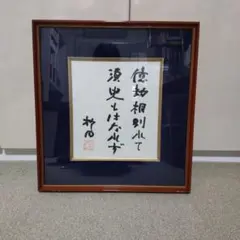 億劫相別れて
須臾もはなれず